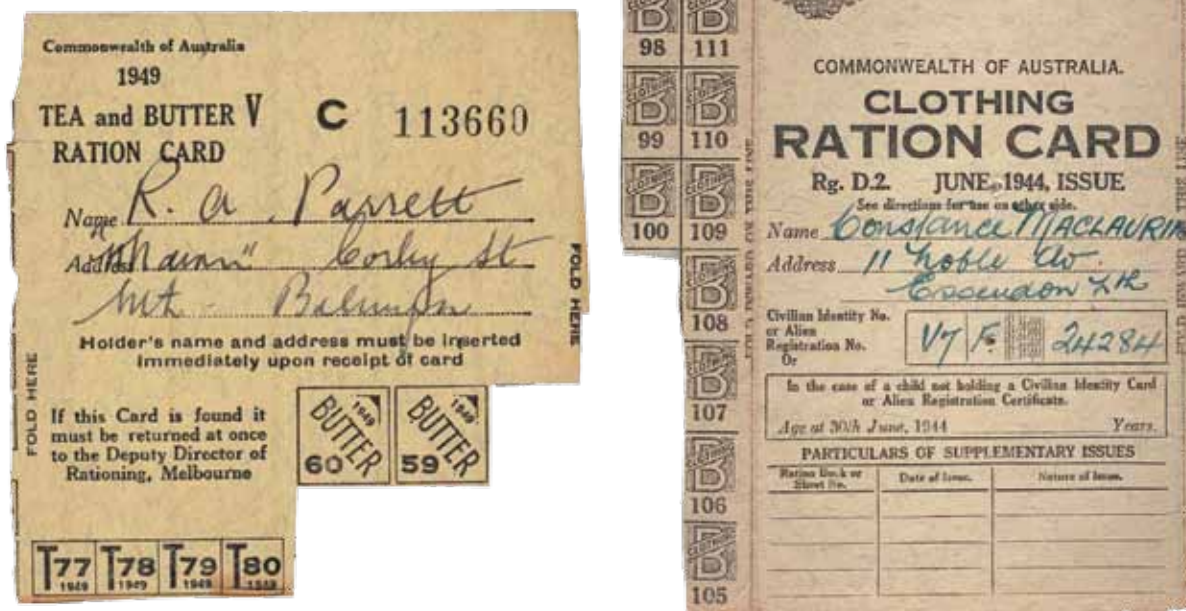 Commonwealth of Australia
1949
TEA and BUTTER V
RATION CARD
C 113660
Name R. A. Parrett
Address St
Mt -
Holder's name and address must be inserted
immediately upon receipt of card
FOLD HERE
FOLD HERE
If this Card is found it
must be returned at once
to the Deputy Director of
Rationing, Melbourne
1949
BUTTER
60
1949
BUTTER
59
T77 1949
T78 1949
T79 1949
T80 1949
B
98
B
111
CLOTHING B
99
CLOTHING B
110
CLOTHING B
100
CLOTHING B
109
CLOTHING B
108
CLOTHING B
107
CLOTHING B
106
CLOTHING B
105
COMMONWEALTH OF AUSTRALIA.
CLOTHING
RATION CARD
Rg. D.2. JUNE, 1944, ISSUE
See directions for use on other side.
Name Constance MACLAURIN
Address 11 Noble Av.
Essendon Nth
Civilian Identity No.
or Alien
Registration No.
Or
V7 F. 24284
In the case of a child not holding a Civilian Identity Card
or Alien Registration Certificate.
Age at 30th June, 1944 Years.
PARTICULARS OF SUPPLEMENTARY ISSUES
Ration Book or
Sheet No.
Date of Issue.
Nature of Issue.